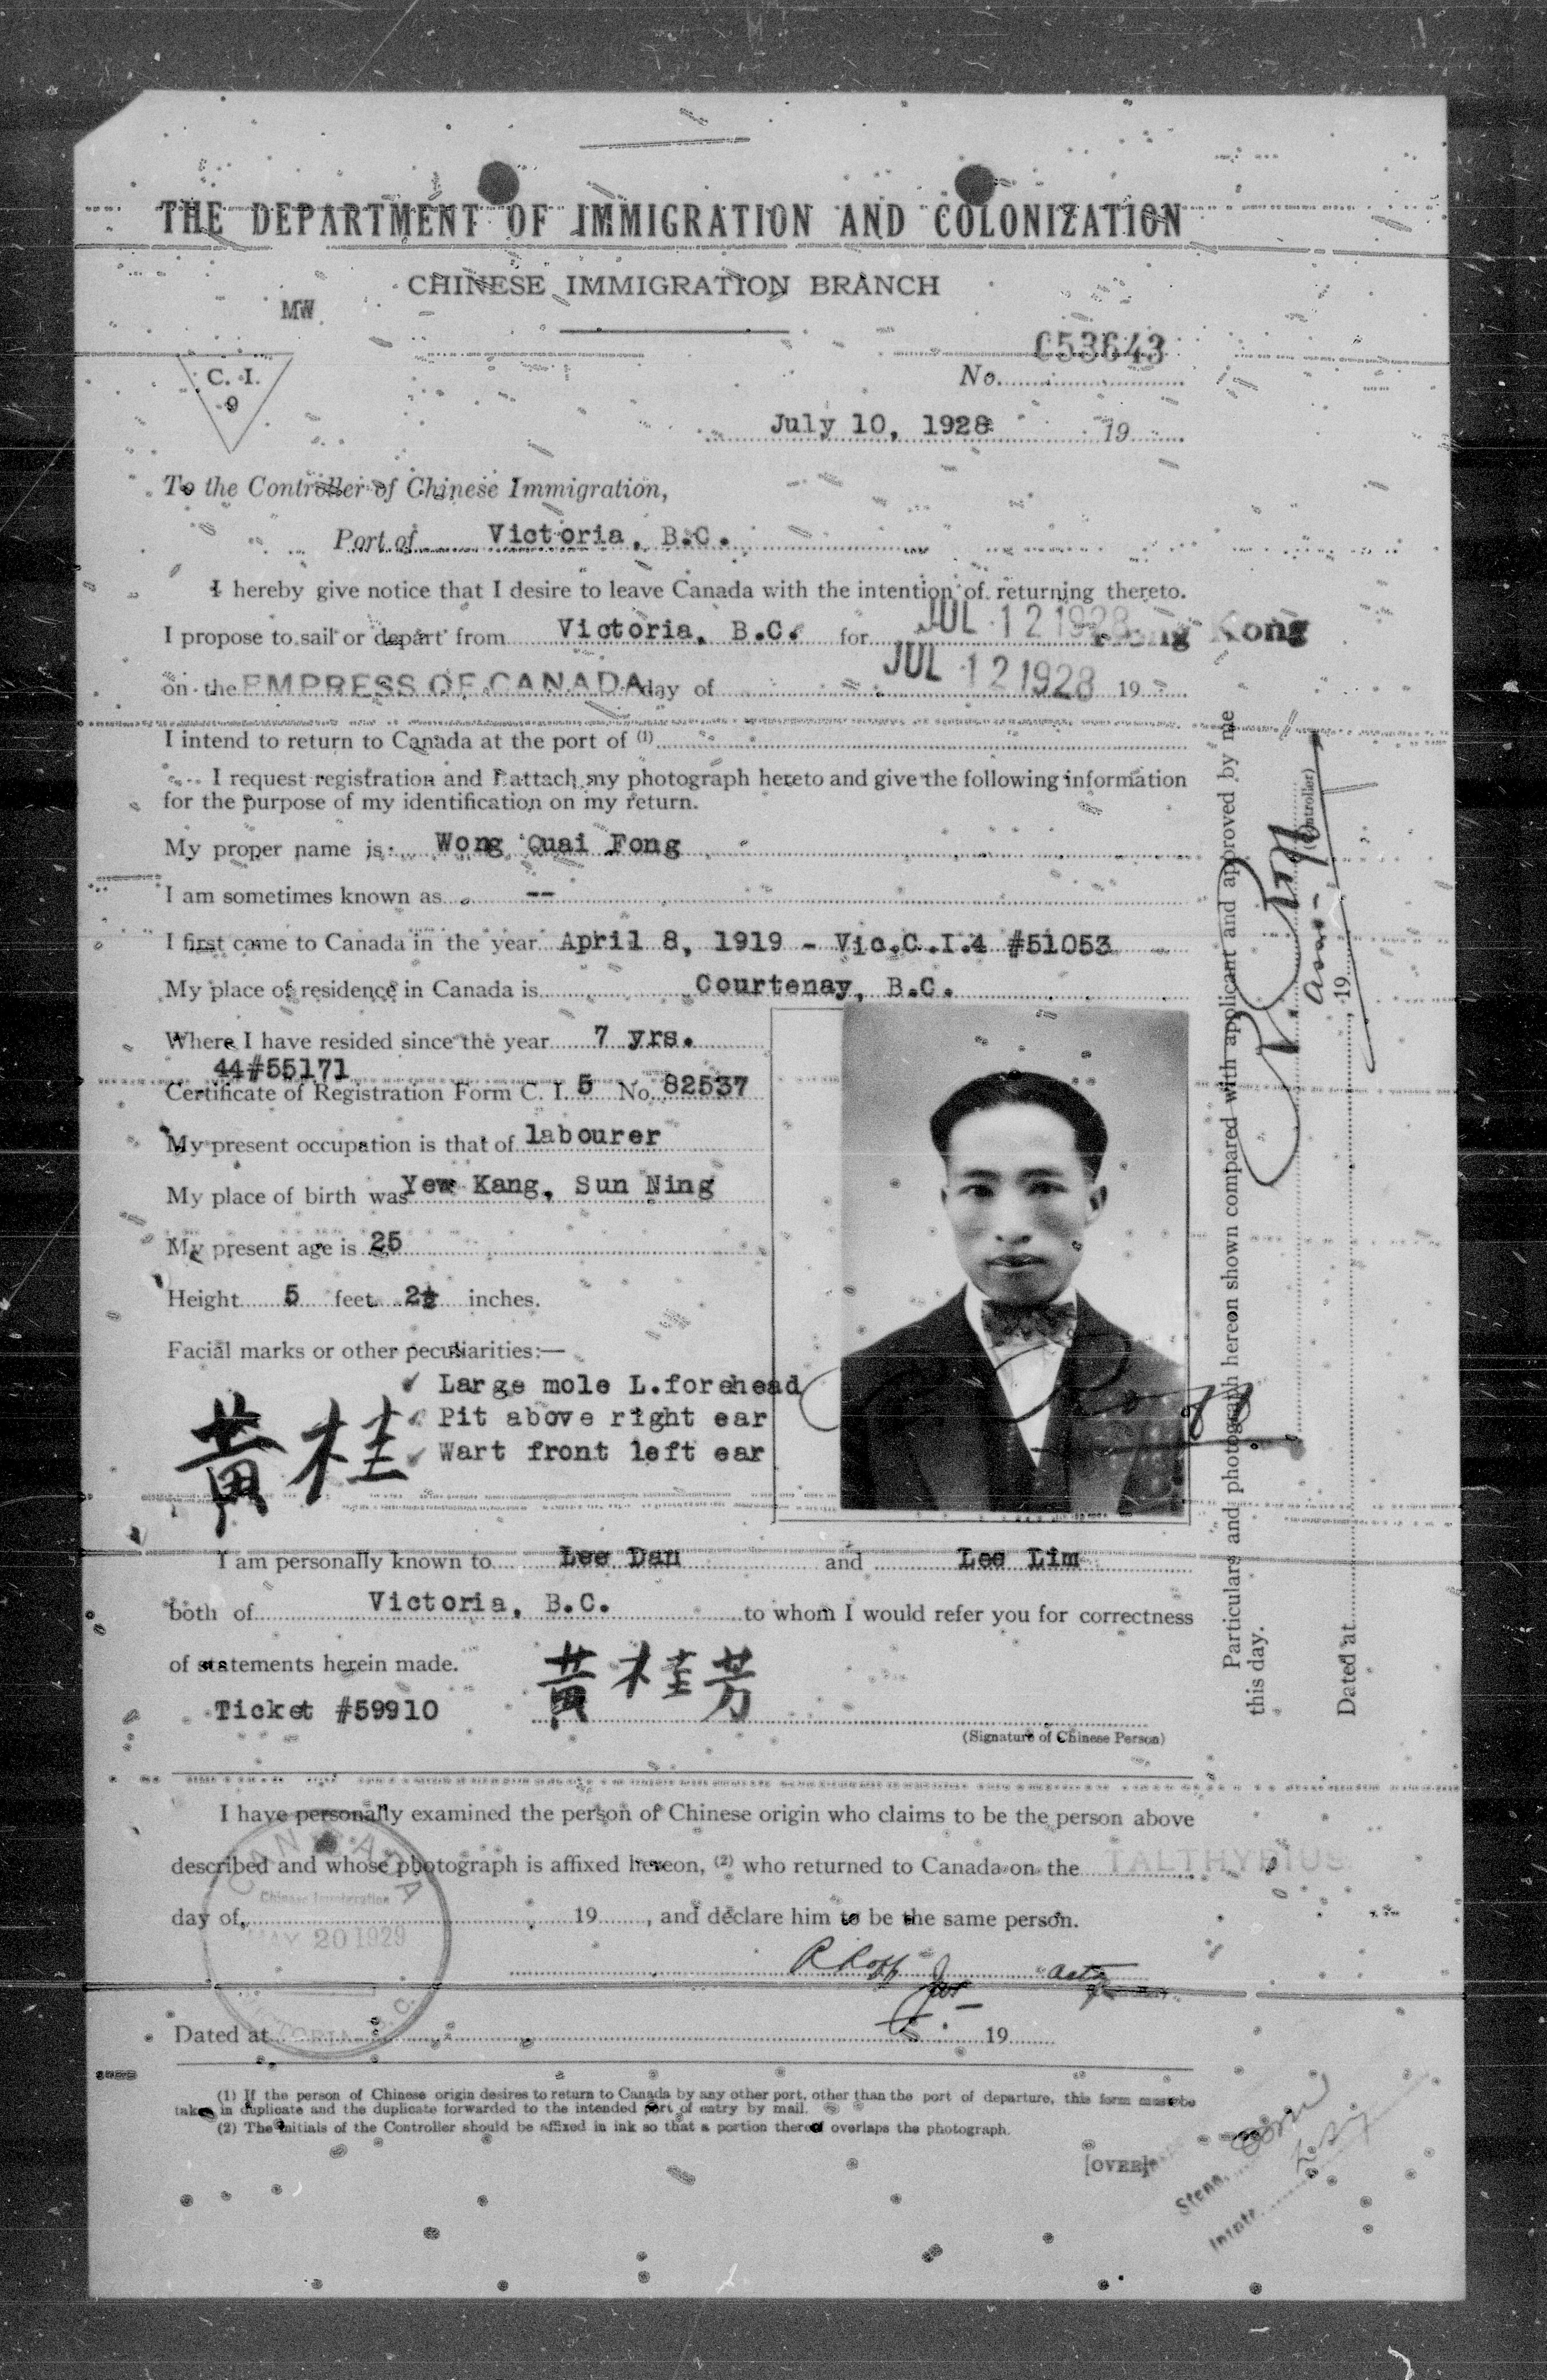 THE DEPARTMENT OF IMMIGRATION AND COLONIZATION
CHINESE IMMIGRATION BRANCH
MW
C. I.
9
No. 053643
July 10, 1928 19
To the Controller of Chinese Immigration,
Port of Victoria, B.C.
I hereby give notice that I desire to leave Canada with the intention of returning thereto.
JUL 12 1928
I propose to sail or depart from Victoria, B.C. for Hong Kong
on the EMPRESS OF CANADA day of JUL 12 1928 19
I intend to return to Canada at the port of (1)
I request registration and I attach my photograph hereto and give the following information
for the purpose of my identification on my return.
My proper name is Wong Quai Fong
I am sometimes known as --
I first came to Canada in the year April 8, 1919 - Vic.C.I.4 #51053
My place of residence in Canada is Courtenay, B.C.
Where I have resided since the year 7 yrs.
44#55171
Certificate of Registration Form C. I. 5 No. 82537
My present occupation is that of labourer
My place of birth was Yew Kang, Sun Ning
My present age is 25
Height 5 feet 2½ inches.
Facial marks or other peculiarities:—
Large mole L.forehead
Pit above right ear
Wart front left ear
黃桂
I am personally known to Lee Dan and Lee Lim
both of Victoria, B.C. to whom I would refer you for correctness
of statements herein made.
Ticket #59910
黃桂芳
(Signature of Chinese Person)
I have personally examined the person of Chinese origin who claims to be the person above
described and whose photograph is affixed hereon, (2) who returned to Canada on the TALTHYBIUS
day of 19, and declare him to be the same person.
CANADA
Chinese Immigration
MAY 20 1929
VICTORIA B.C.
Dated at 19
(1) If the person of Chinese origin desires to return to Canada by any other port, other than the port of departure, this form must be
taken in duplicate and the duplicate forwarded to the intended port of entry by mail.
(2) The initials of the Controller should be affixed in ink so that a portion thereof overlaps the photograph.
[OVER]
Steno.
Intptr.
Particulars and photograph hereon shown compared with applicant and approved by me
this day.
(Controller)
Dated at 19